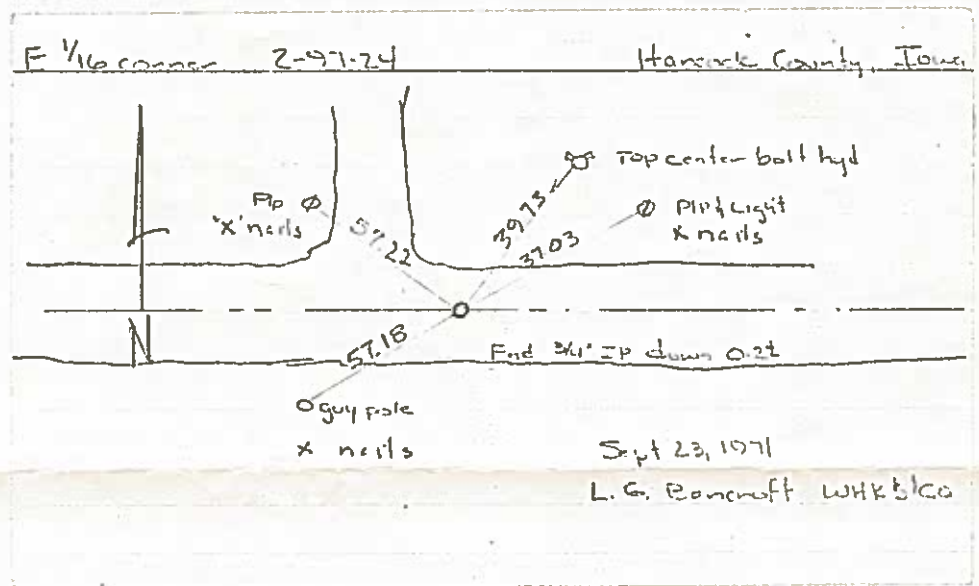 E 1/16 corner 2-97-24 Hancock County, Iowa
Top center bolt hyd
P/p
'X' nails
57.22
39.73
37.03
P/P & Light
X nails
N
57.18
Fnd 3/4" IP down 0.2±
guy pole
X nails
Sept 23, 1971
L. G. Bancroft WHKS & Co